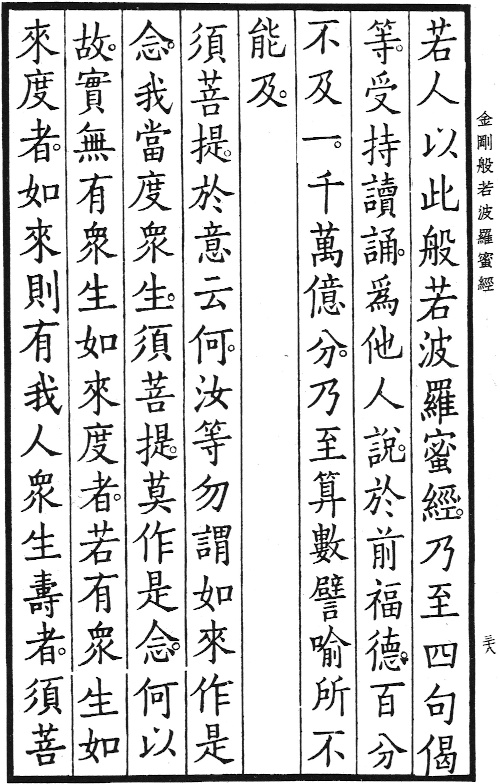 金剛般若波羅蜜經
若人以此般若波羅蜜經。乃至四句偈
等。受持讀誦。爲他人說。於前福德。百分
不及一。千萬億分。乃至算數譬喻所不
能及。
須菩提。於意云何。汝等勿謂如來作是
念。我當度眾生。須菩提。莫作是念。何以
故。實無有眾生如來度者。若有眾生如
來度者。如來則有我人眾生壽者。須菩
三八